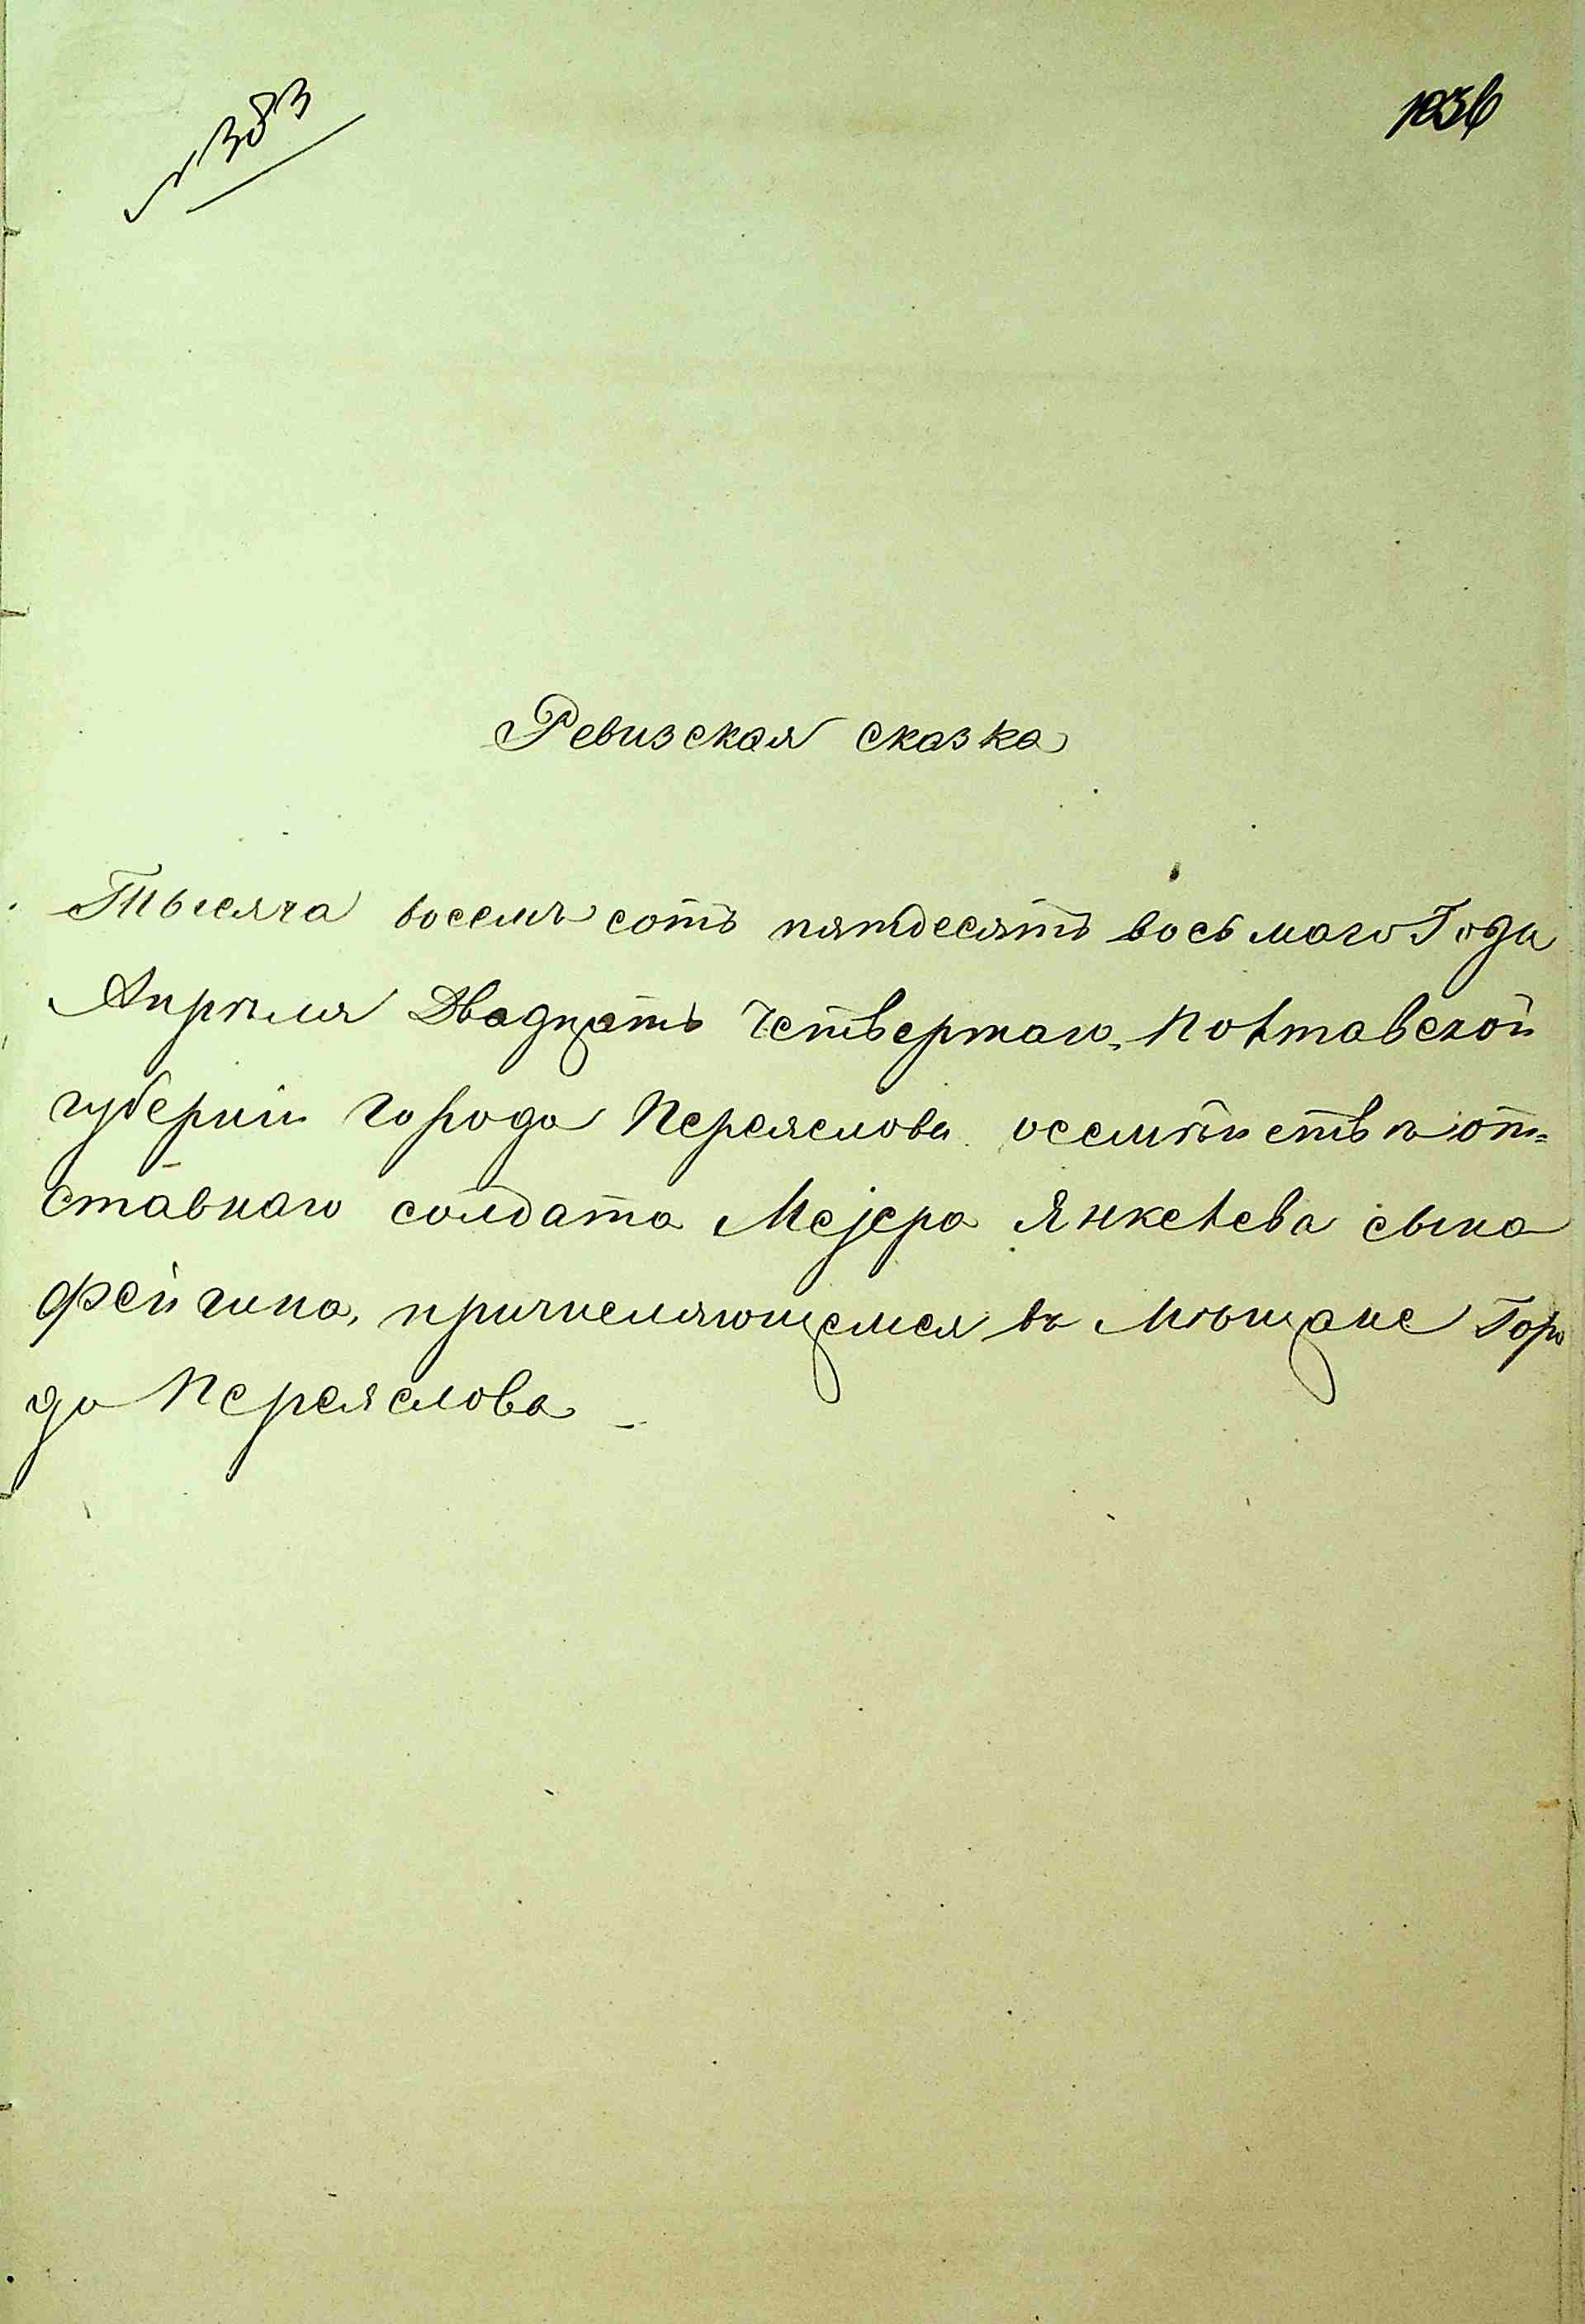 № 383
1036
Ревизская сказка
Тысяча восемь сотъ пятдесятъ восьмаго Года
Апрѣля Двадцать Четвертаго, Полтавской
губерніи города Переяслова о семѣйствѣ от=
ставнаго солдата Мејера Янкелева сына
Фейгина, причисляющемся въ Мѣщане Горо
да Переяслова